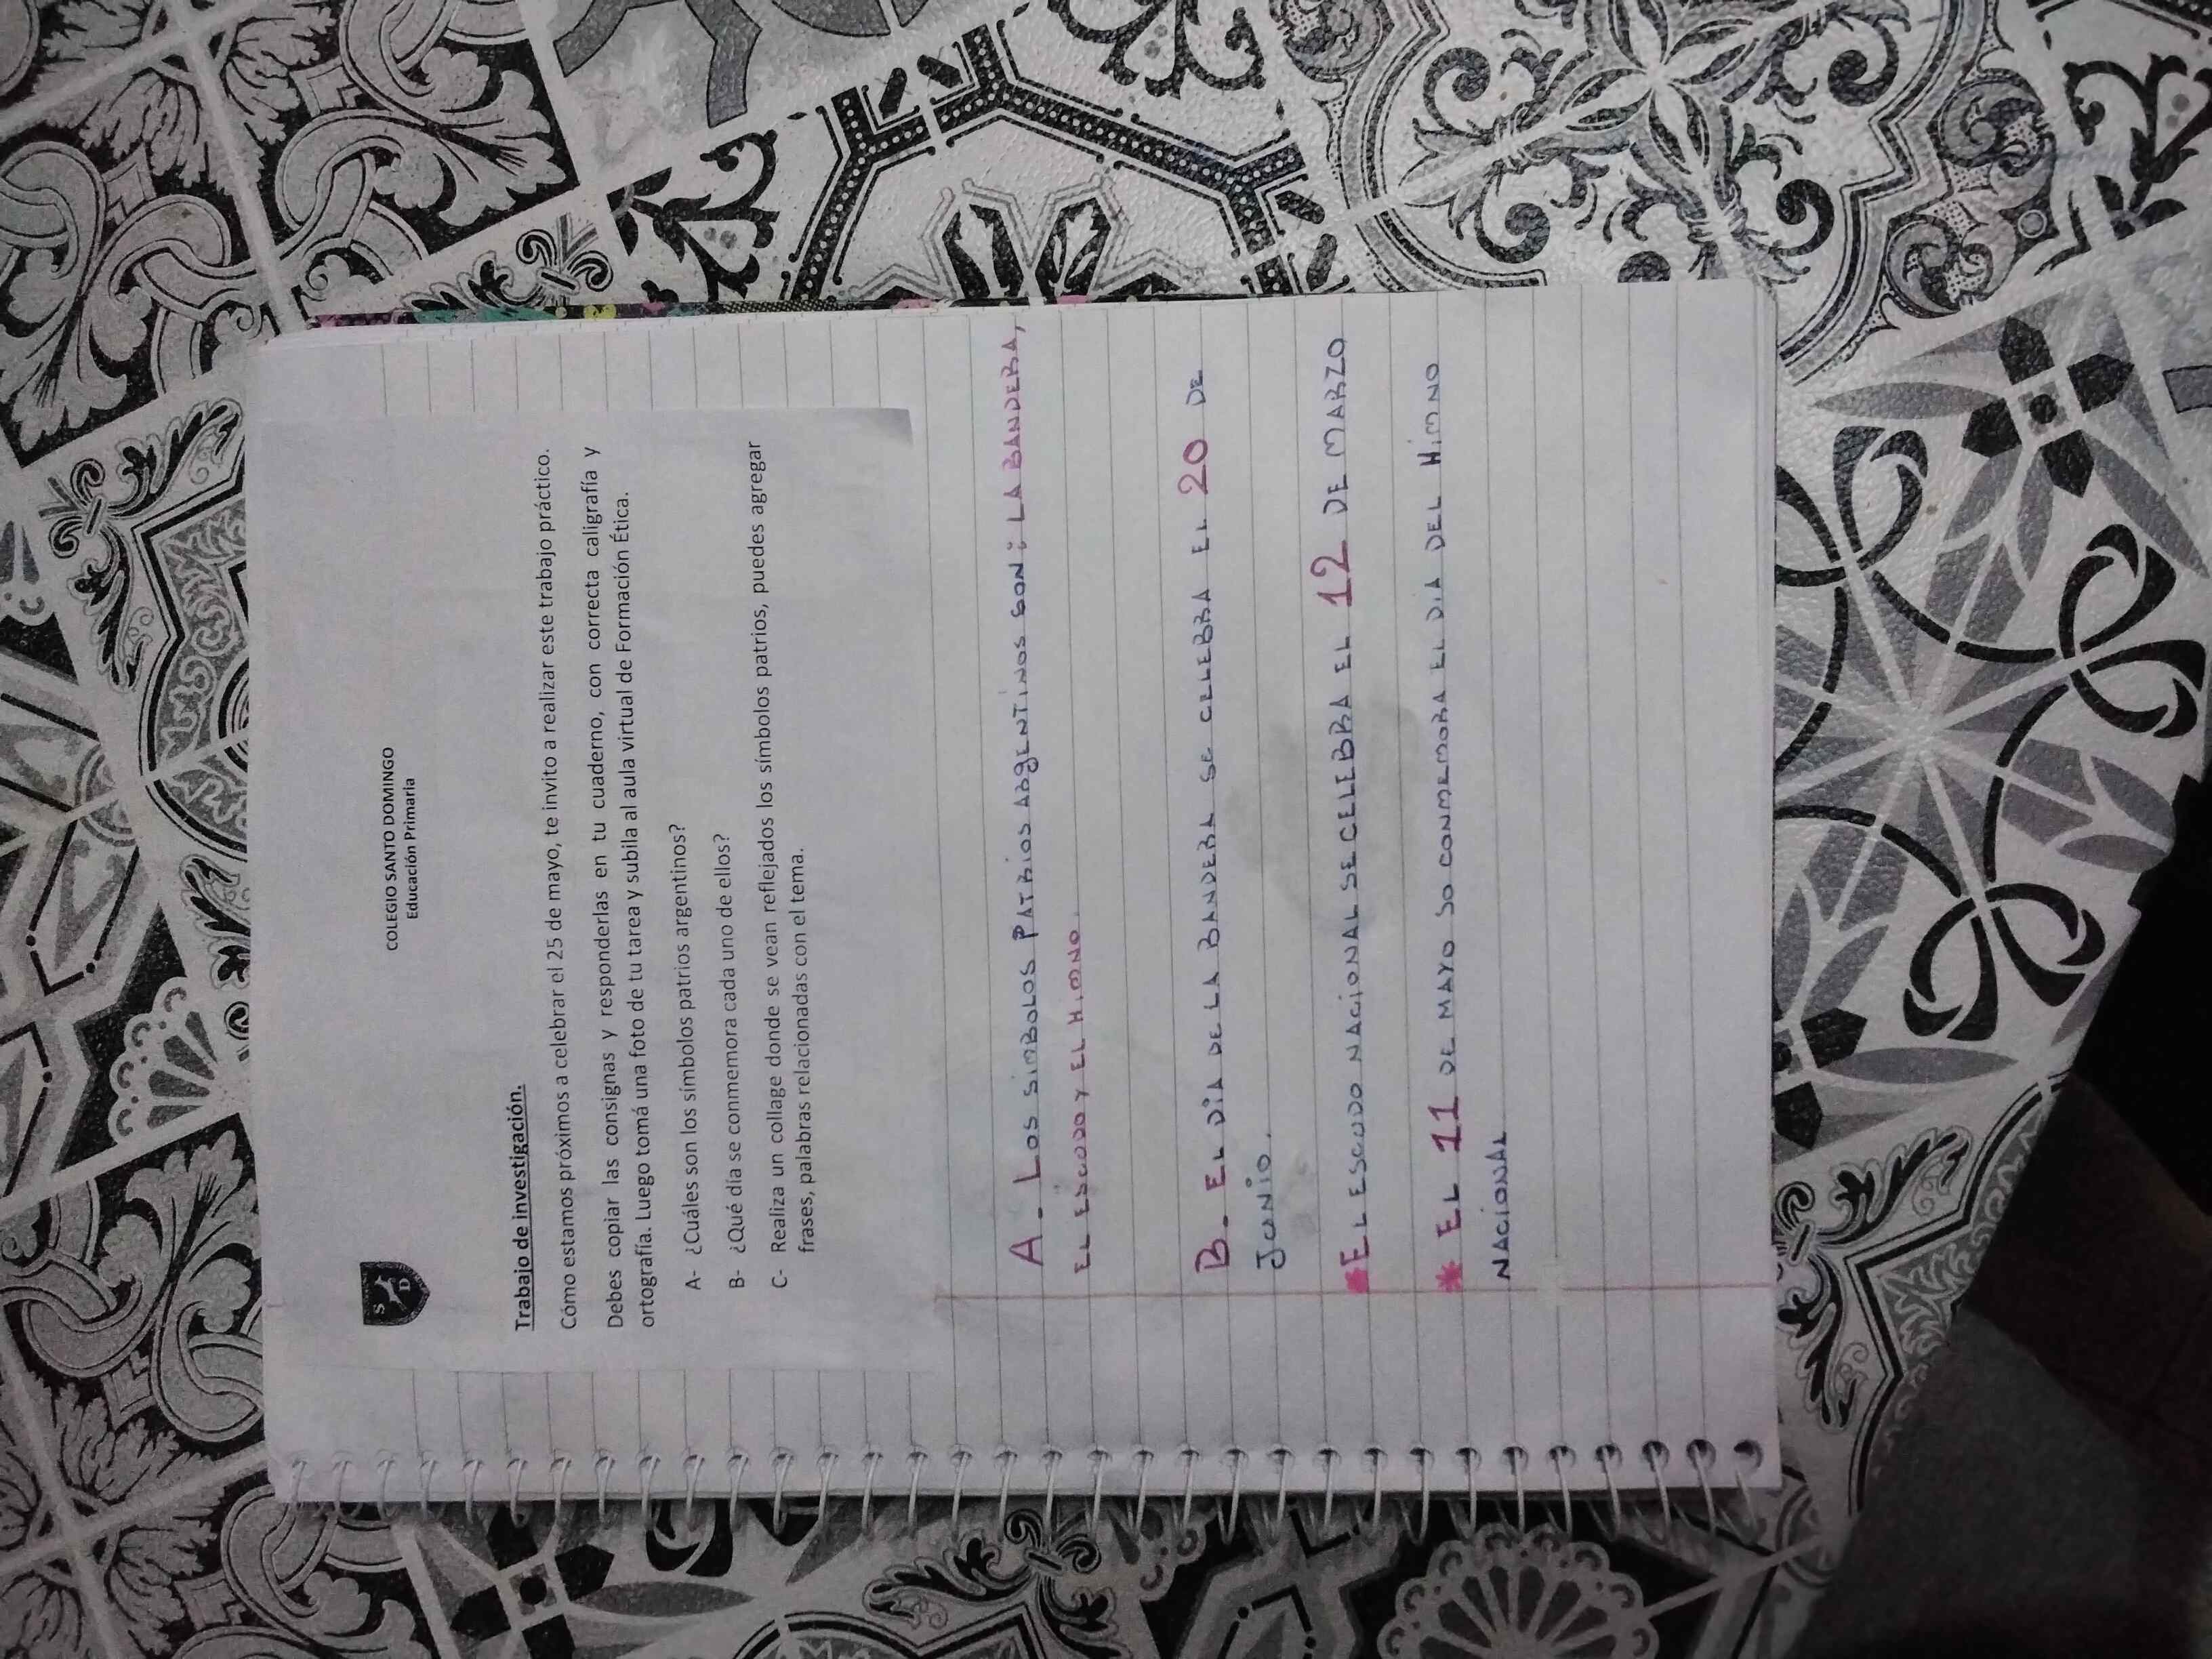 S
D
COLEGIO SANTO DOMINGO
Educación Primaria
Trabajo de investigación.
Cómo estamos próximos a celebrar el 25 de mayo, te invito a realizar este trabajo práctico.
Debes copiar las consignas y responderlas en tu cuaderno, con correcta caligrafía y
ortografía. Luego tomá una foto de tu tarea y subila al aula virtual de Formación Ética.
A- ¿Cuáles son los símbolos patrios argentinos?
B- ¿Qué día se conmemora cada uno de ellos?
C- Realiza un collage donde se vean reflejados los símbolos patrios, puedes agregar
frases, palabras relacionadas con el tema.
A- LOS SIMBOLOS PATRIOS ARGENTINOS SON: LA BANDERA,
EL ESCUDO Y EL HIMNO.
B- EL DIA DE LA BANDERA SE CELEBRA EL 20 DE
JUNIO.
* EL ESCUDO NACIONAL SE CELEBRA EL 12 DE MARZO
* EL 11 DE MAYO SO CONMEMORA EL DIA DEL HIMNO
NACIONAL